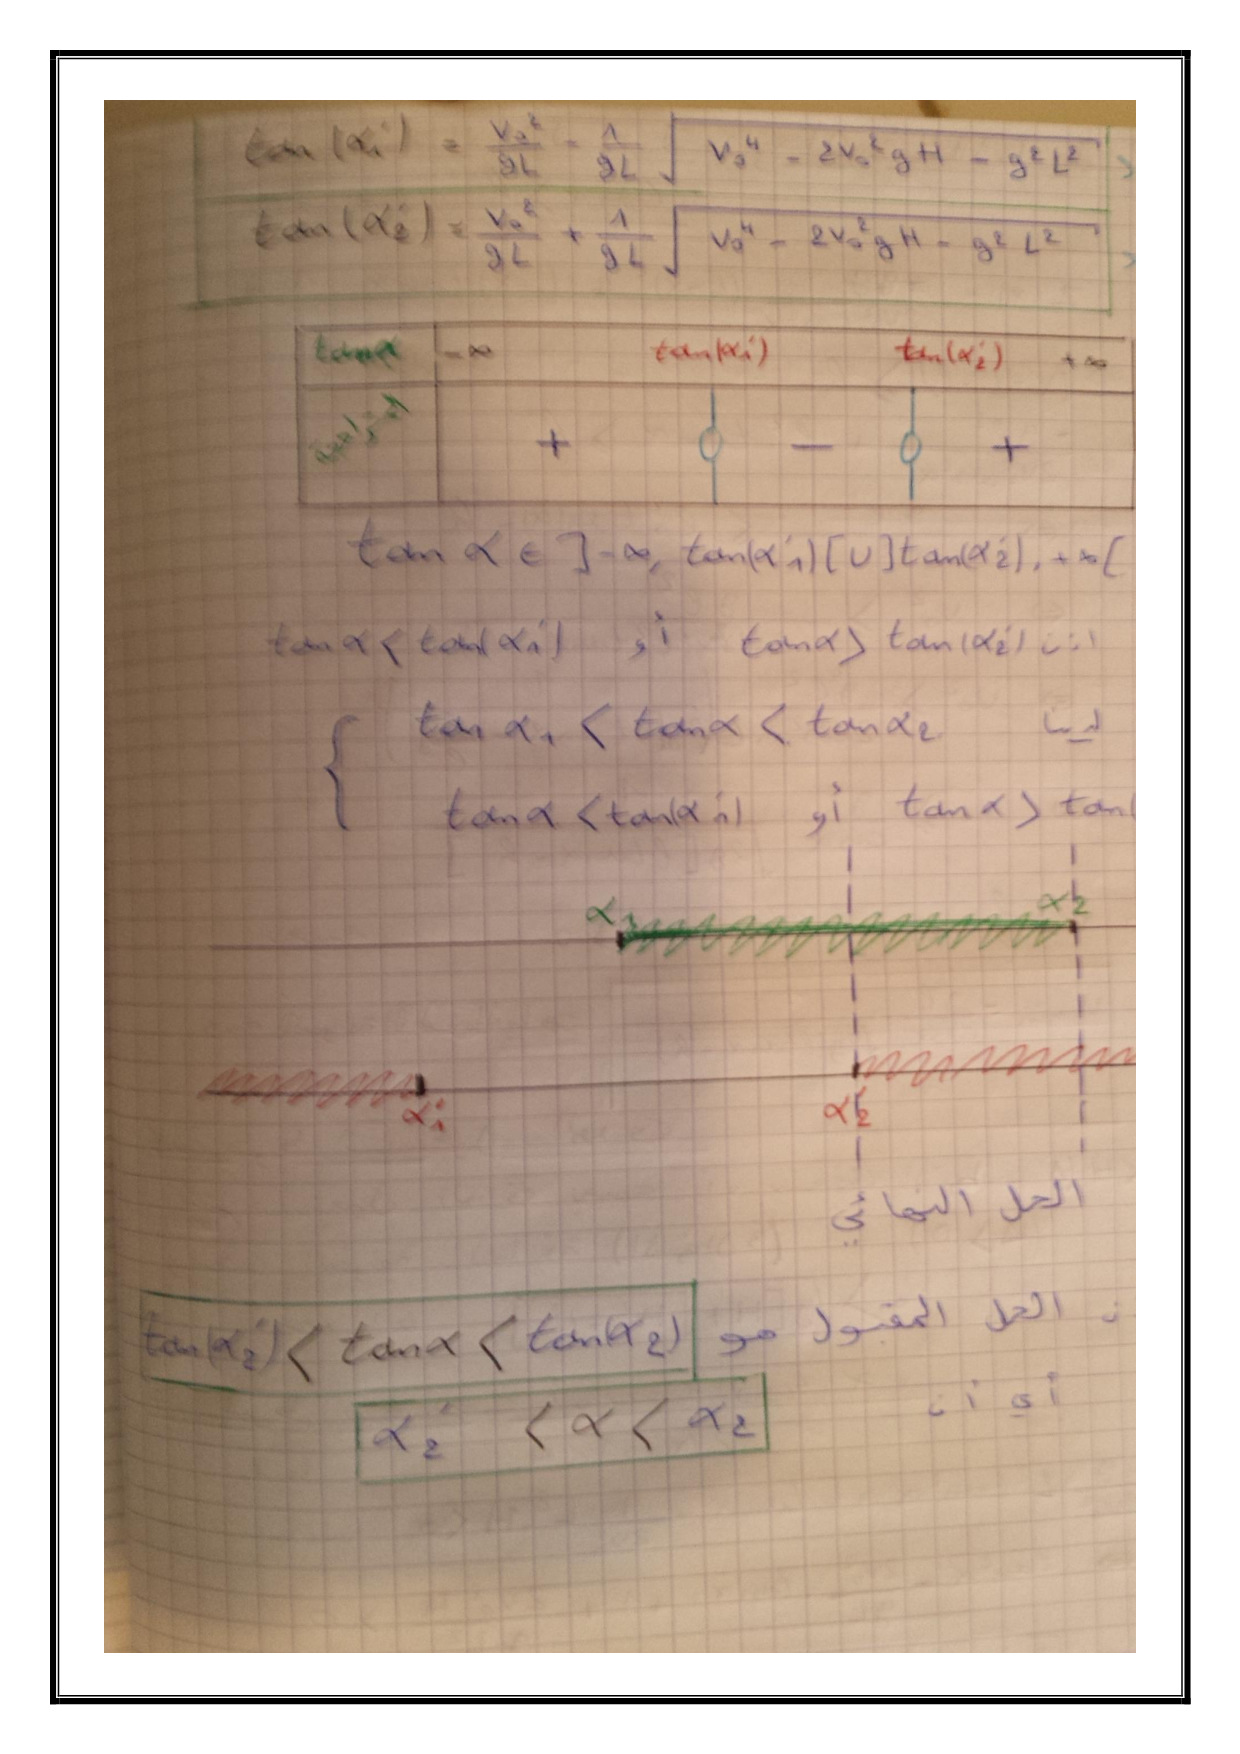 tan(α₁′) = V₀²/gL - 1/gL √(V₀⁴ - 2V₀²gH - g²L²)
tan(α₂′) = V₀²/gL + 1/gL √(V₀⁴ - 2V₀²gH - g²L²)
tanα -∞ tan(α₁′) tan(α₂′) +∞
+ 0 - 0 +
tan α ∈ ]-∞, tan(α₁′)[ ∪ ]tan(α₂′), +∞[
tanα < tan(α₁′) أو tanα > tan(α₂′)
{ tan α₁ < tanα < tanα₂ لدينا
tanα < tan(α₁′) أو tanα > tan(
α₁ α₂
α₁′ α₂′
الحل النهائي
الحل المقبول هو tan(α₂′) < tanα < tan(α₂)
أي أن α₂′ < α < α₂